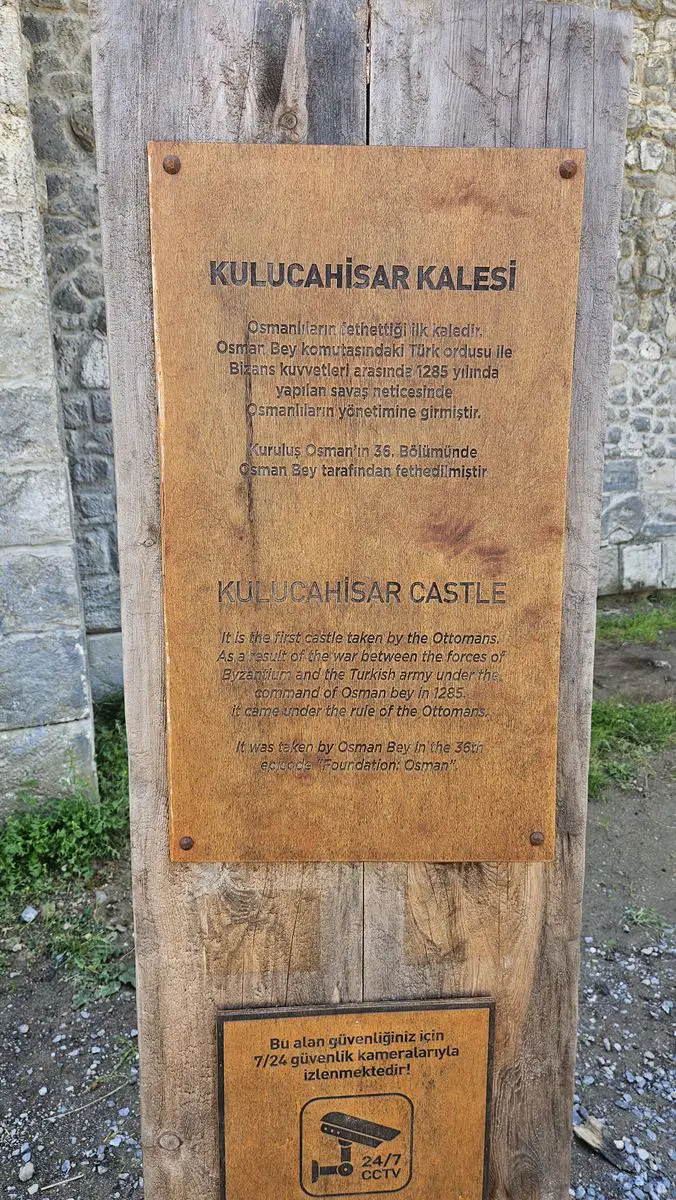 KULUCAHİSAR KALESİ
Osmanlıların fethettiği ilk kaledir.
Osman Bey komutasındaki Türk ordusu ile
Bizans kuvvetleri arasında 1285 yılında
yapılan savaş neticesinde
Osmanlıların yönetimine girmiştir.
Kuruluş Osman'ın 36. Bölümünde
Osman Bey tarafından fethedilmiştir
KULUCAHİSAR CASTLE
It is the first castle taken by the Ottomans.
As a result of the war between the forces of
Byzantium and the Turkish army under the
command of Osman bey in 1285.
it came under the rule of the Ottomans.
It was taken by Osman Bey in the 36th
episode "Foundation: Osman".
Bu alan güvenliğiniz için
7/24 güvenlik kameralarıyla
izlenmektedir!
24/7
CCTV